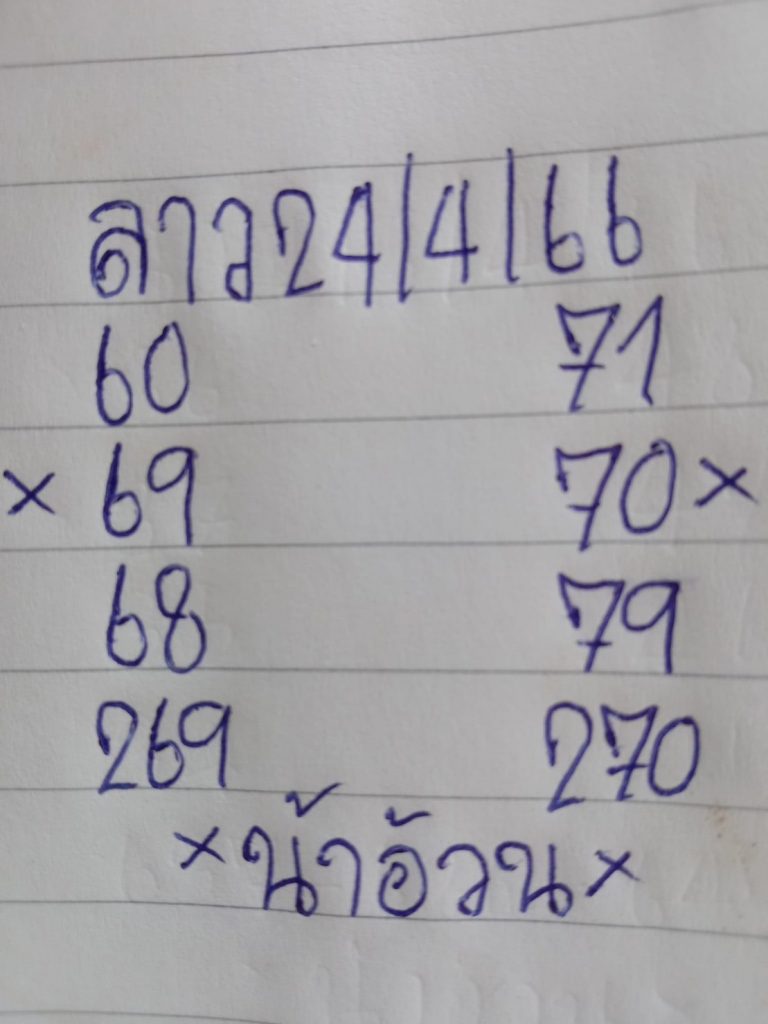 ลาว24/4/66
60 71
× 69 70 ×
68 79
269 270
×น้าอ้วน×